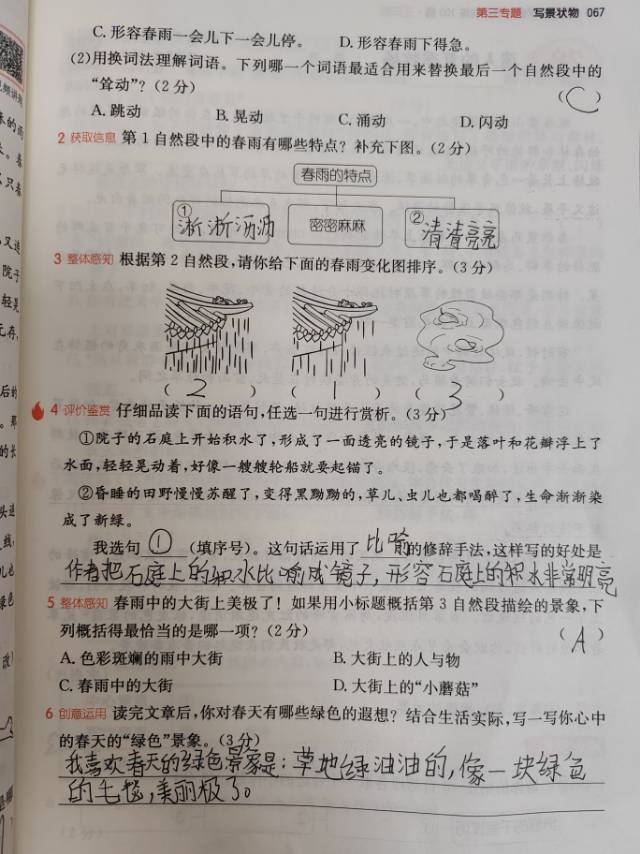 第三专题 写景状物 067
C. 形容春雨一会儿下一会儿停。 D. 形容春雨下得急。
(2)用换词法理解词语。下列哪一个词语最适合用来替换最后一个自然段中的
“耸动”？(2分) (C)
A. 跳动 B. 晃动 C. 涌动 D. 闪动
2 获取信息 第1自然段中的春雨有哪些特点？补充下图。(2分)
春雨的特点
①淅淅沥沥 密密麻麻 ②清清亮亮
3 整体感知 根据第2自然段,请你给下面的春雨变化图排序。(3分)
(2) (1) (3)
4 评价鉴赏 仔细品读下面的语句,任选一句进行赏析。(3分)
①院子的石庭上开始积水了,形成了一面透亮的镜子,于是落叶和花瓣浮上了
水面,轻轻晃动着,好像一艘艘轮船就要起锚了。
②昏睡的田野慢慢苏醒了,变得黑黝黝的,草儿、虫儿也都喝醉了,生命渐渐染
成了新绿。
我选句 ① (填序号)。这句话运用了 比喻 的修辞手法,这样写的好处是
作者把石庭上的积水比喻成镜子,形容石庭上的积水非常明亮
5 整体感知 春雨中的大街上美极了！如果用小标题概括第3自然段描绘的景象,下
列概括得最恰当的是哪一项？(2分) (A)
A. 色彩斑斓的雨中大街 B. 大街上的人与物
C. 春雨中的大街 D. 大街上的“小蘑菇”
6 创意运用 读完文章后,你对春天有哪些绿色的遐想？结合生活实际,写一写你心中
的春天的“绿色”景象。(3分)
我喜欢春天的绿色景象是：草地绿油油的,像一块绿色
的毛毯,美丽极了。